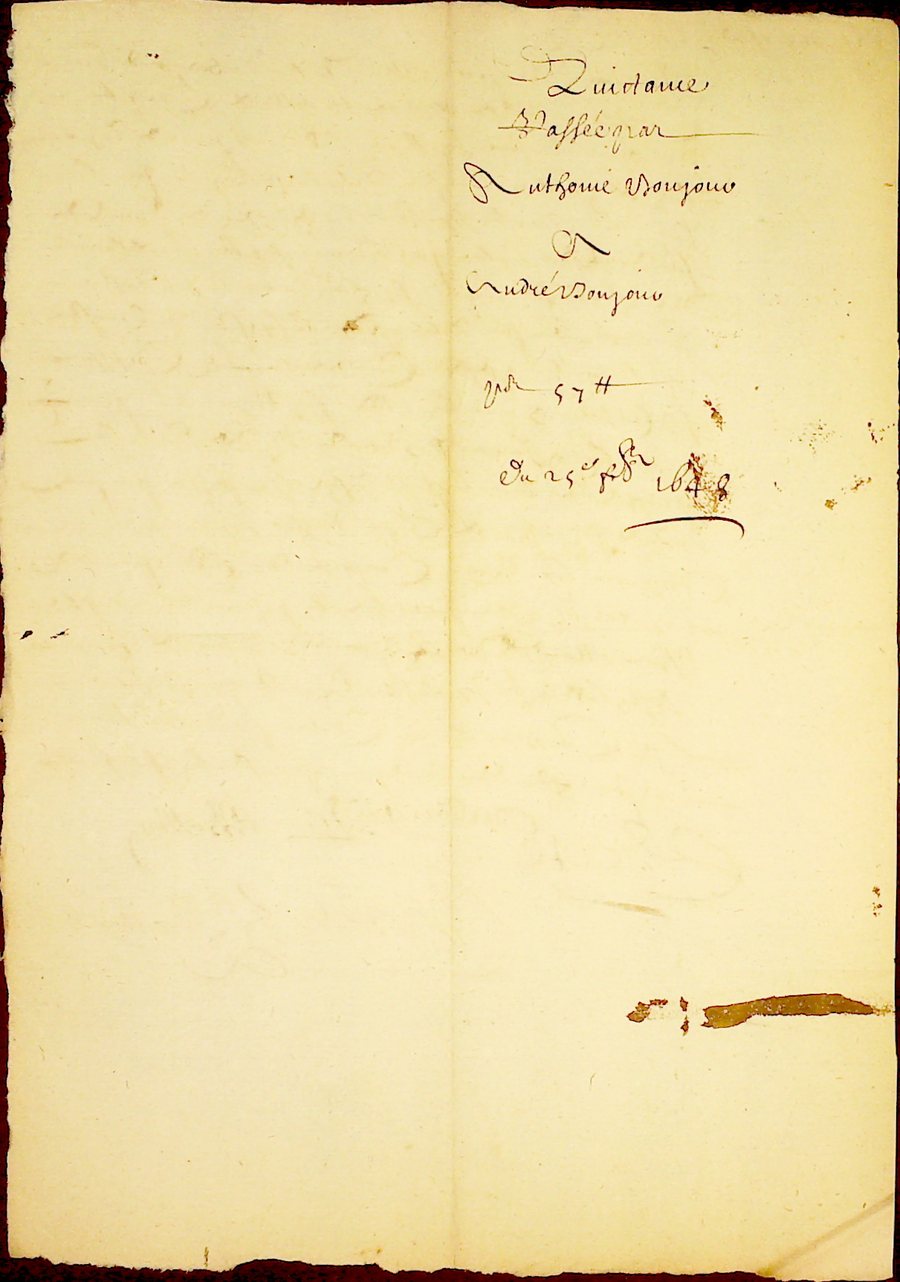 Quictance
Passée par
Anthonie Boujou
A
André Boujou
pr 57 tt
Du 25e 1648